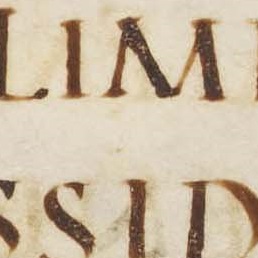 LIM
SSID